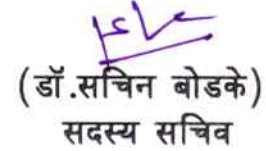 (डॉ.सचिन बोडके)
सदस्य सचिव